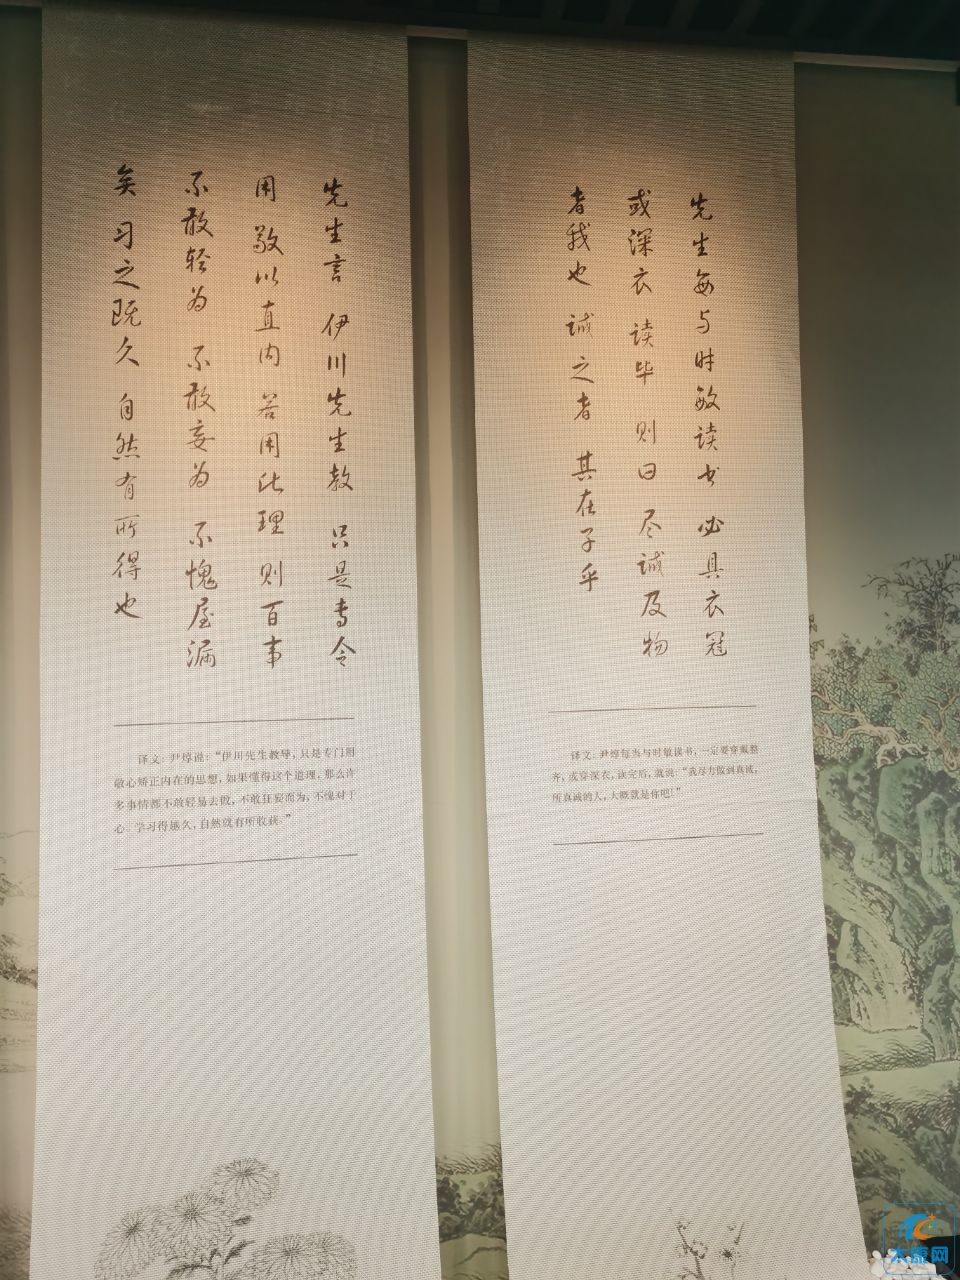 先生每与时敏读书 必具衣冠
或深衣 读毕 则曰 尽诚及物
者我也 诚之者 其在子乎
译文：尹焞每当与时敏读书，一定要穿戴整
齐，或穿深衣，读完后，就说：“我尽力做到真诚，
所真诚的人，大概就是你吧！”
先生言 伊川先生教 只是专令
用敬以直内 若用此理 则百事
不敢轻为 不敢妄为 不愧屋漏
矣 习之既久 自然有所得也
译文：尹焞说：“伊川先生教导，只是专门用
敬心矫正内在的思想，如果懂得这个道理，那么许
多事情都不敢轻易去做，不敢狂妄而为，不愧对于
心。学习得越久，自然就有所收获。”
太康网